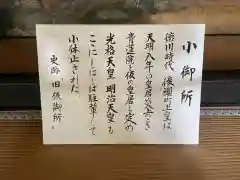 小御所
徳川時代 後桜町上皇は
天明八年の皇居炎上のとき
青蓮院を仮の皇居と定め
光格天皇 明治天皇も
ここにしばしば駐輦して
小休止された
史跡 旧仮御所